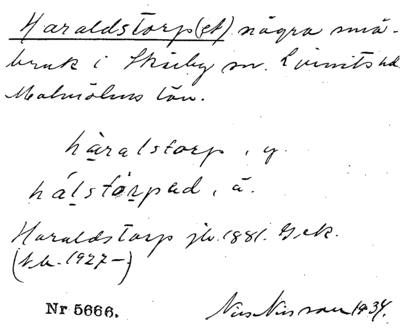 Haraldstorp(et) några små-
bruk i Skiuby sn. Livinits hd
Malmöhus län.
håralstorp, y.
hålstårpad, ä.
Haraldstorp jb. 1881. G.ek.
(N.b. 1927-)
Nr 5666.
Nils Nilsson 1934.